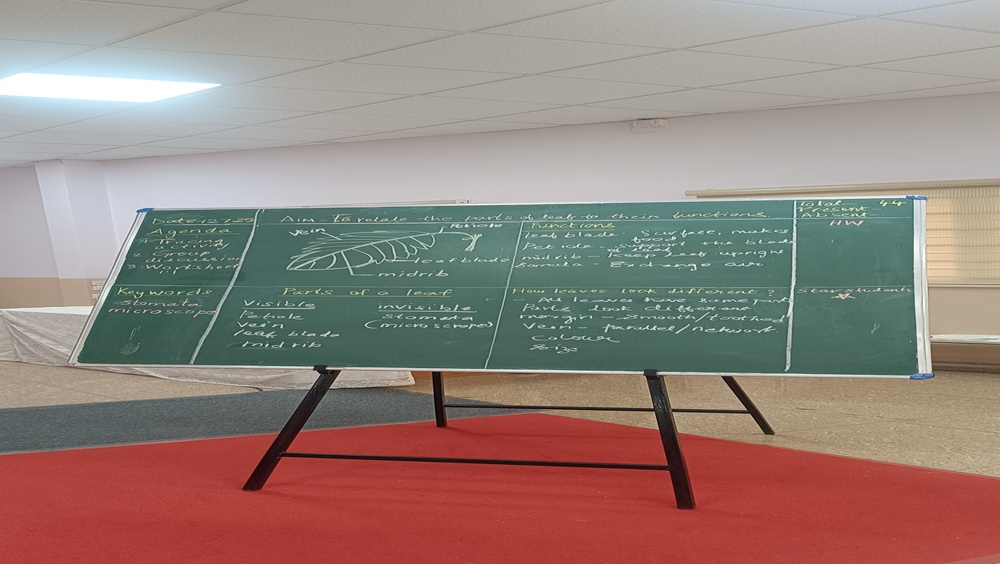 Date-12.7.25
Aim: To relate the parts of leaf to their functions
Total 44
Present
Absent-
HW
Agenda
1. Tracing
activity
2. Group
discussion
3. Worksheet
Keywords
stomata
microscope
vein
Petiole
leaf blade
midrib
Parts of a leaf
Visible
vein
leaf blade
midrib
invisible
stomata
(microscope)
Functions
leaf blade - Surface, makes
food
Petiole - support the blade
to stem
midrib - Keep leaf upright
Exchange air
How leaves look different?
- All leaves have same parts
Parts look different
margin - smooth/toothed
vein - parallel/network
colour
size
Star students